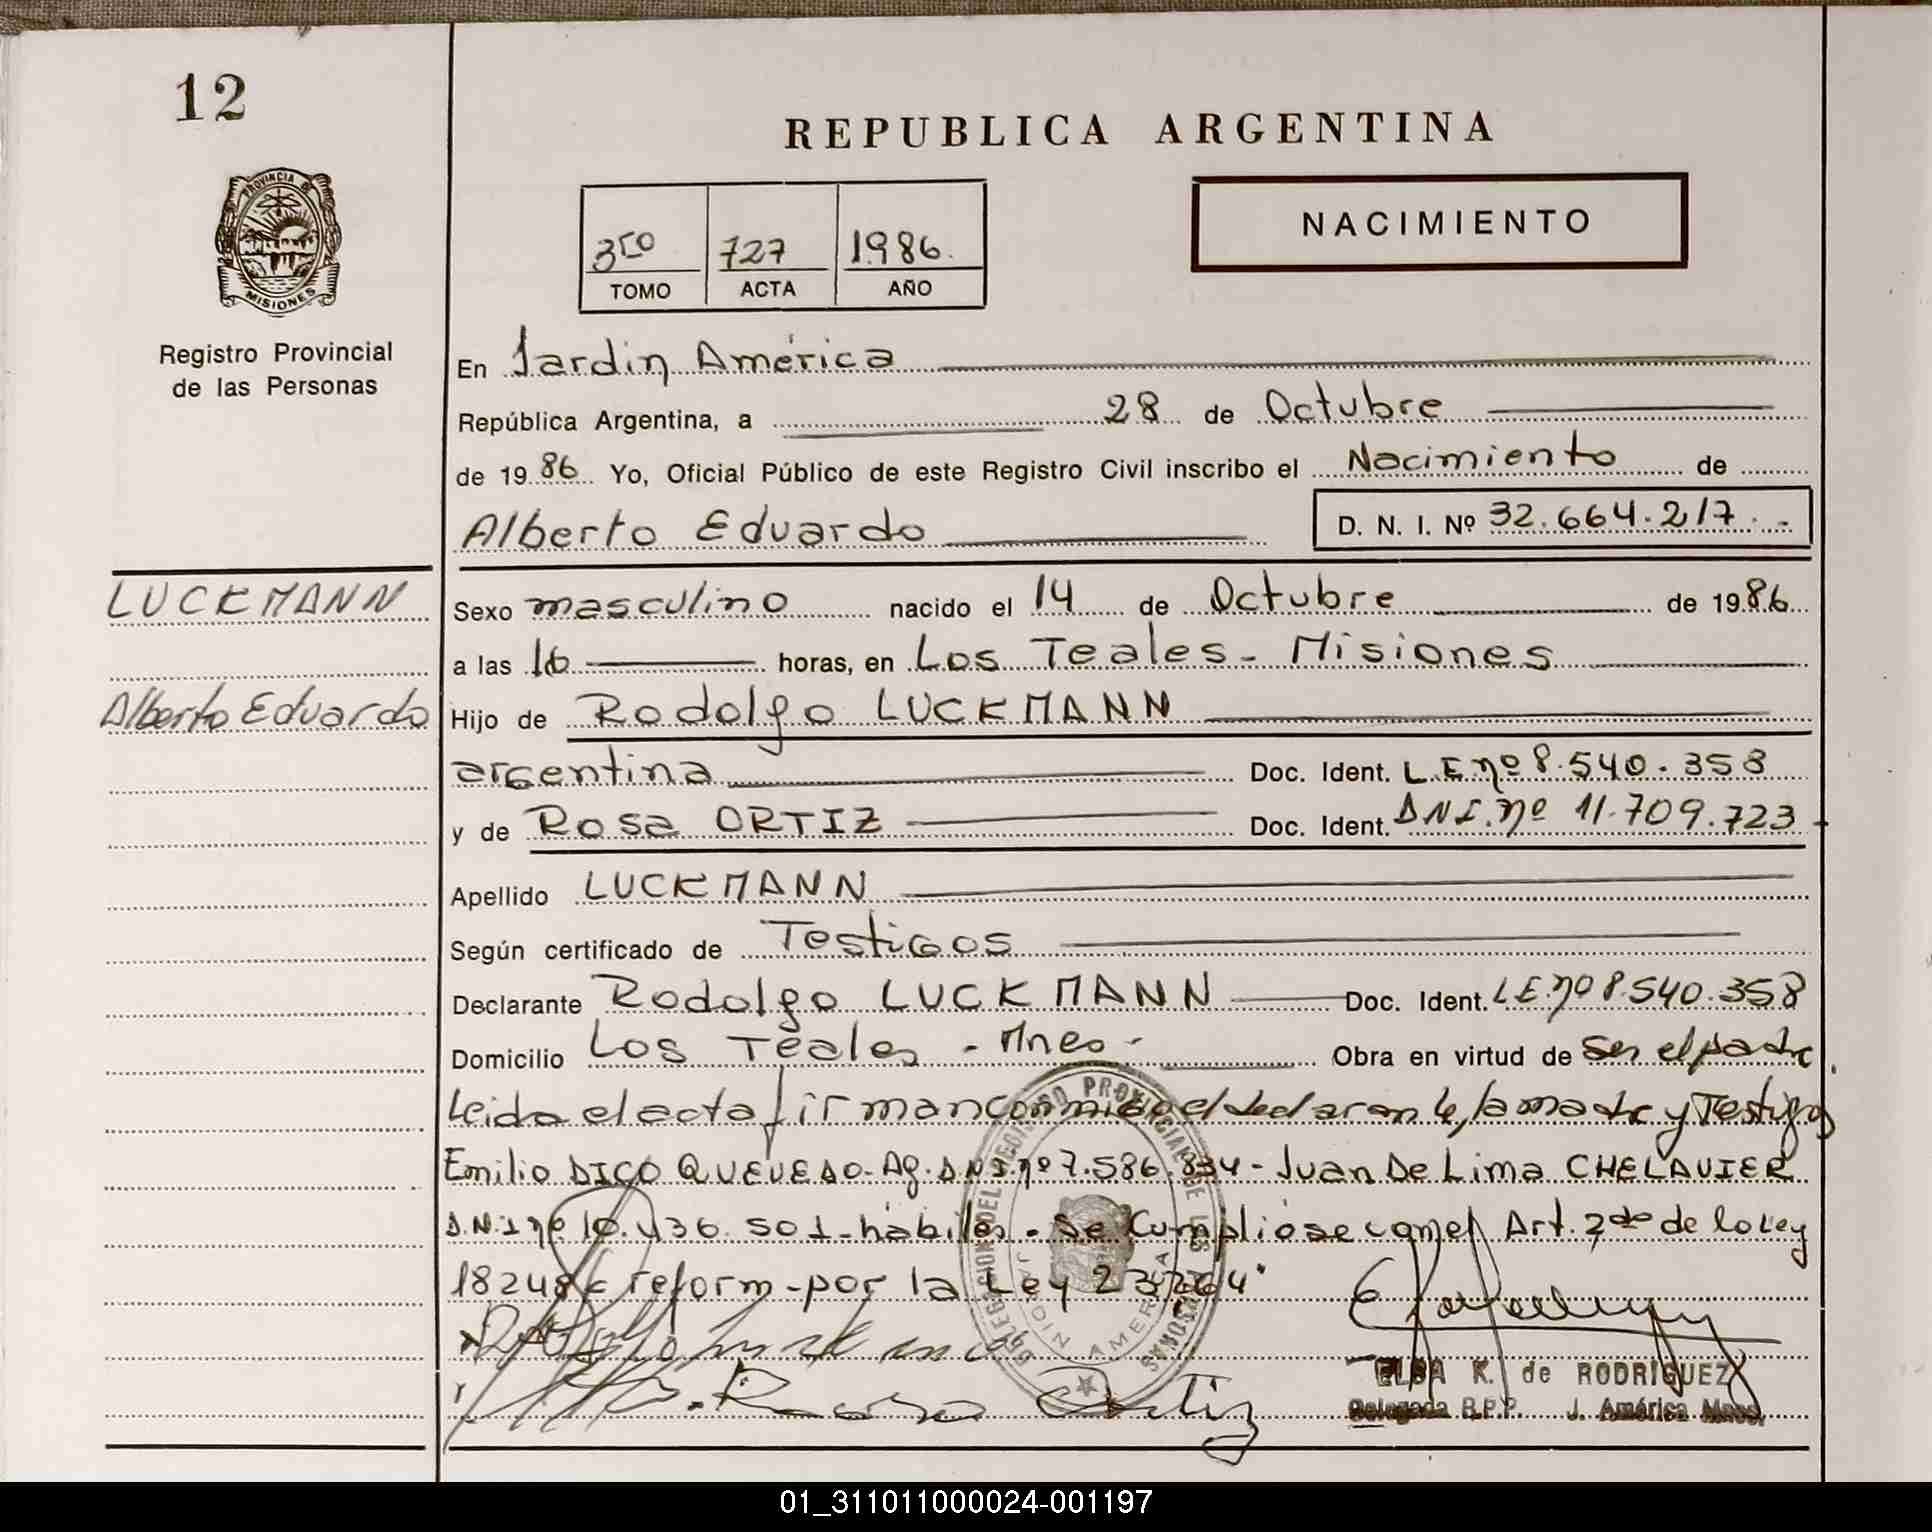 12
REPUBLICA ARGENTINA
PROVINCIA DE
MISIONES
NACIMIENTO
3ro 727 1986.
TOMO ACTA AÑO
Registro Provincial
de las Personas
En Jardin América
República Argentina, a 28 de Octubre
de 1986 Yo, Oficial Público de este Registro Civil inscribo el Nacimiento de
Alberto Eduardo D. N. I. Nº 32.664.217.-
LUCKMANN
Sexo masculino nacido el 14 de Octubre de 1986
a las 16 horas, en Los Teales - Misiones
Alberto Eduardo
Hijo de Rodolfo LUCKMANN
argentina Doc. Ident. L.E nº 8.540.358
y de Rosa ORTIZ Doc. Ident. DNI.nº 11.709.723-
Apellido LUCKMANN
Según certificado de Testigos
Declarante Rodolfo LUCKMANN Doc. Ident. LE.nº 8.540.358
Domicilio Los Teales - Mnes - Obra en virtud de ser el padre.
Leida el acta firman conmigo el declarante, la madre y Testigos
Emilio DICO QUEVEDO - Ag. DNI.nº 7.586.834 - Juan De Lima CHELAVIER
D.N.I nº 10.436.501 - hábiles - Se Cumplióse con el Art. 2do de la Ley
18248 reform - por la Ley 23264"
DELEGACION DEL REGISTRO PROVINCIAL DE LAS PERSONAS
JARDIN AMERICA
Rosa Ortiz
ELSA K. de RODRIGUEZ
Delegada R.P.P. J. América Mnes.
01_311011000024-001197